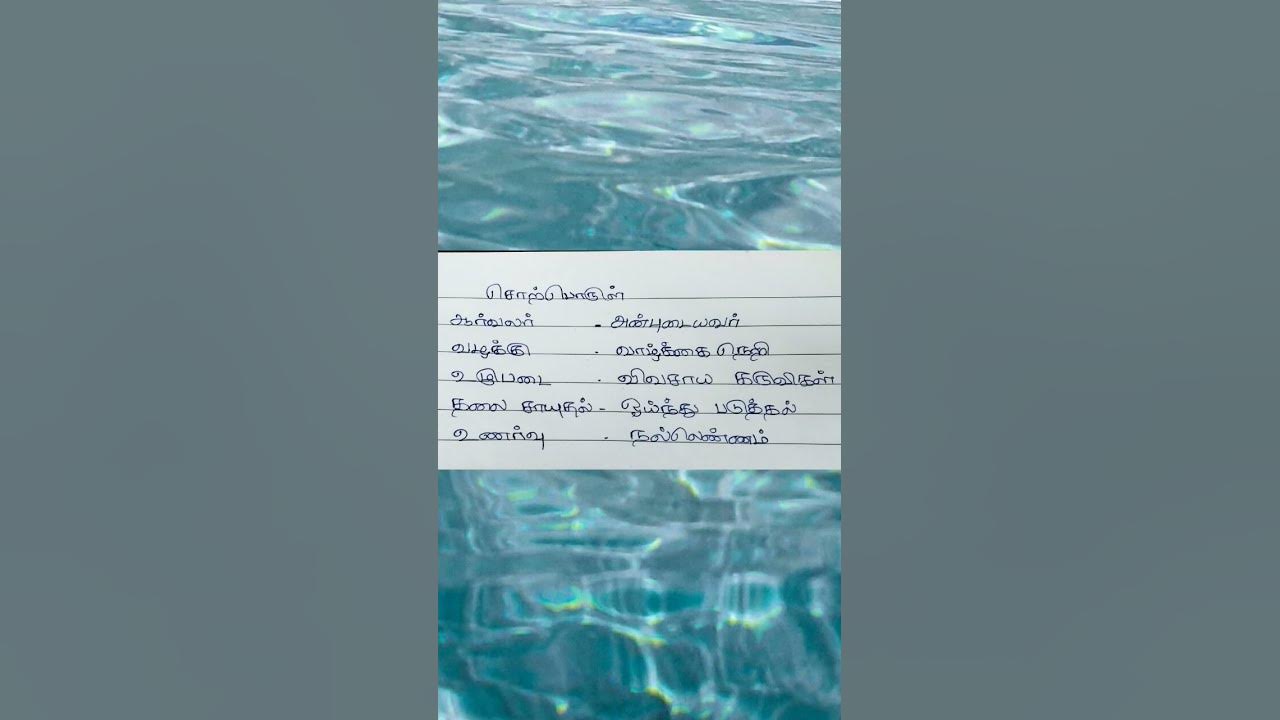 சொற்பொருள்
ஆர்வலர் - அன்புடையவர்
வழக்கு - வாழ்க்கை நெறி
உழுபடை - விவசாய கருவிகள்
தலை சாயுதல் - ஓய்ந்து படுத்தல்
உணர்வு - நல்லெண்ணம்